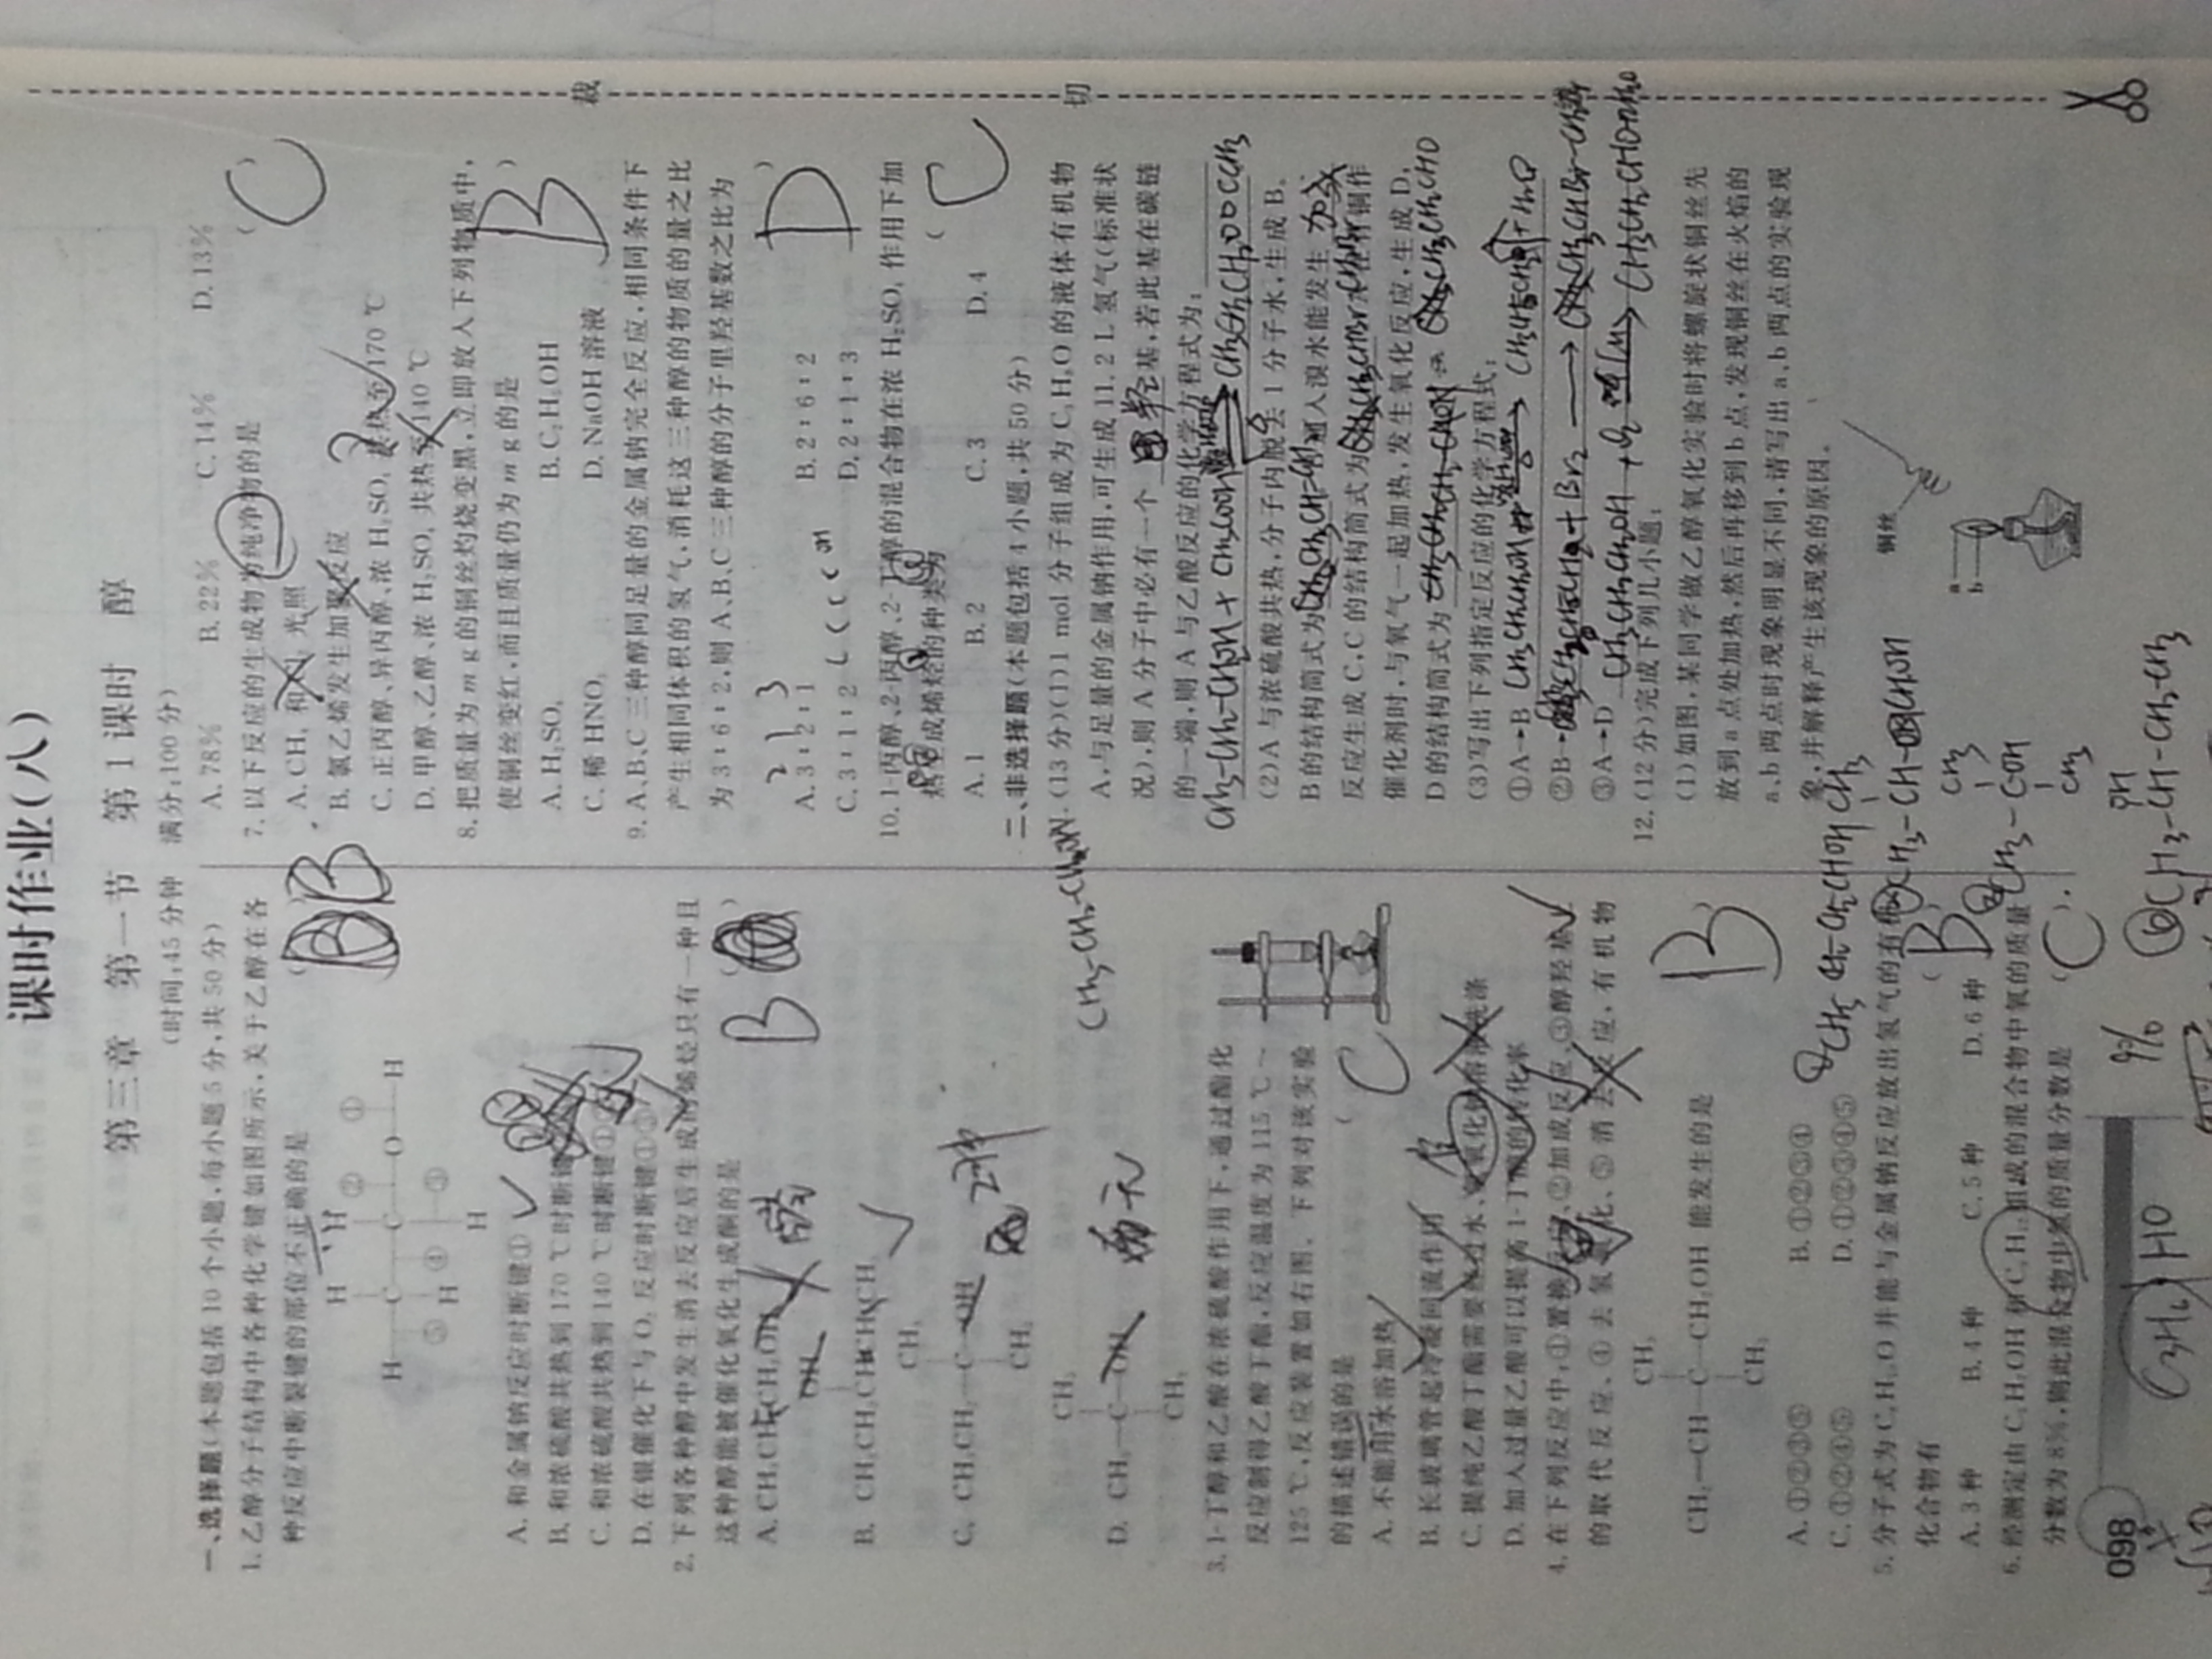 课时作业(八)
第三章 第一节 第1课时 醇
(时间:45分钟 满分:100分)
一、选择题(本题包括10个小题,每小题5分,共50分)
1.乙醇分子结构中各种化学键如图所示,关于乙醇在各
种反应中断裂键的部位不正确的是 ( ) B
H H ② ①
H C C O H
⑤ H ④ ③
H
A.和金属钠反应时断键①
B.和浓硫酸共热到170 ℃时断键
C.和浓硫酸共热到140 ℃时断键①
D.在银催化下与O₂反应时断键①③
2.下列各种醇中发生消去反应后生成的烯烃只有一种且
这种醇能被催化氧化生成酮的是 ( ) B
A.CH₃CH₂CH₂OH
OH
B. CH₃CH₂CHCH₂CH₃
CH₃
C. CH₃CH₂—C—OH 2种
CH₃
CH₃
D. CH₃—C—OH 无
CH₃
3.1-丁醇和乙酸在浓硫酸作用下,通过酯化
反应制得乙酸丁酯,反应温度为115 ℃~
125 ℃,反应装置如右图。下列对该实验
的描述错误的是 ( C
A.不能用水浴加热
B.长玻璃管起冷凝回流作用
C.提纯乙酸丁酯需要经过水、氢氧化钠溶液洗涤
D.加入过量乙酸可以提高1-丁醇的转化率
4.在下列反应中,①置换反应、②加成反应、③醇羟基上
的取代反应、④去氢氧化、⑤消去反应,有机物
CH₃
CH₂—CH—C—CH₂OH 能发生的是 B
CH₃
A.①②③⑤ B.①②③④
C.①②④⑤ D.①②③④⑤
5.分子式为C₄H₁₀O并能与金属钠反应放出氢气的有机
化合物有 ( B
A.3种 B.4种 C.5种 D.6种
6.经测定由C₃H₇OH和C₆H₁₂组成的混合物中氧的质量
分数为8%,则此混合物中氢的质量分数是 ( C )
098
C₃H₆ HO
9%
CH₃
CH₃-CH-CH₂OH
CH₃
CH₃-COH
CH₃
OH
CH₃-CH-CH₂-CH₃
A.78% B.22% C.14% D.13%
7.以下反应的生成物为纯净物的是 ( C )
A.CH₄和Cl₂光照
B.氯乙烯发生加聚反应
C.正丙醇、异丙醇、浓H₂SO₄共热至170 ℃
D.甲醇、乙醇、浓H₂SO₄共热至140 ℃
8.把质量为m g的铜丝灼烧变黑,立即放入下列物质中,
使铜丝变红,而且质量仍为m g的是 B )
A.H₂SO₄ B.C₂H₅OH
C.稀HNO₃ D.NaOH溶液
9.A、B、C三种醇同足量的金属钠完全反应,相同条件下
产生相同体积的氢气,消耗这三种醇的物质的量之比
为3∶6∶2,则A、B、C三种醇的分子里羟基数之比为
2 1 3 D )
A.3∶2∶1 B.2∶6∶2
C.3∶1∶2 C C C C OH D.2∶1∶3
10.1-丙醇、2-丙醇、2-丁醇的混合物在浓H₂SO₄作用下加
热生成烯烃的种类为 ( C
A.1 B.2 C.3 D.4
二、非选择题(本题包括4小题,共50分)
CH₃-CH₂-CH₂OH
(13分)(1)1 mol分子组成为C₃H₈O的液体有机物
A,与足量的金属钠作用,可生成11.2 L氢气(标准状
况),则A分子中必有一个 羟 基,若此基在碳链
的一端,则A与乙酸反应的化学方程式为:
CH₃-CH₂-CH₂OH + CH₃COOH CH₃CH₂CH₂OOCCH₃
(2)A与浓硫酸共热,分子内脱去1分子水,生成B。
B的结构简式为 CH₃CH=CH₂ 通入溴水能发生 加成
反应生成C,C的结构简式为 CH₃CHBr-CH₂Br 在有铜作
催化剂时,与氧气一起加热,发生氧化反应,生成D,
D的结构简式为 CH₃CH₂CHO
(3)写出下列指定反应的化学方程式:
①A→B CH₃CH₂CH₂OH CH₃CH=CH₂↑+H₂O
②B→ CH₃CH=CH₂ + Br₂ ⟶ CH₃CHBr-CH₂Br
③A→D CH₃CH₂CH₂OH + O₂ Cu CH₃CH₂CHO+H₂O
12.(12分)完成下列几小题:
(1)如图,某同学做乙醇氧化实验时将螺旋状铜丝先
放到a点处加热,然后再移到b点,发现铜丝在火焰的
a、b两点时现象明显不同,请写出a、b两点的实验现
象,并解释产生该现象的原因。
铜丝
a
b
裁
切